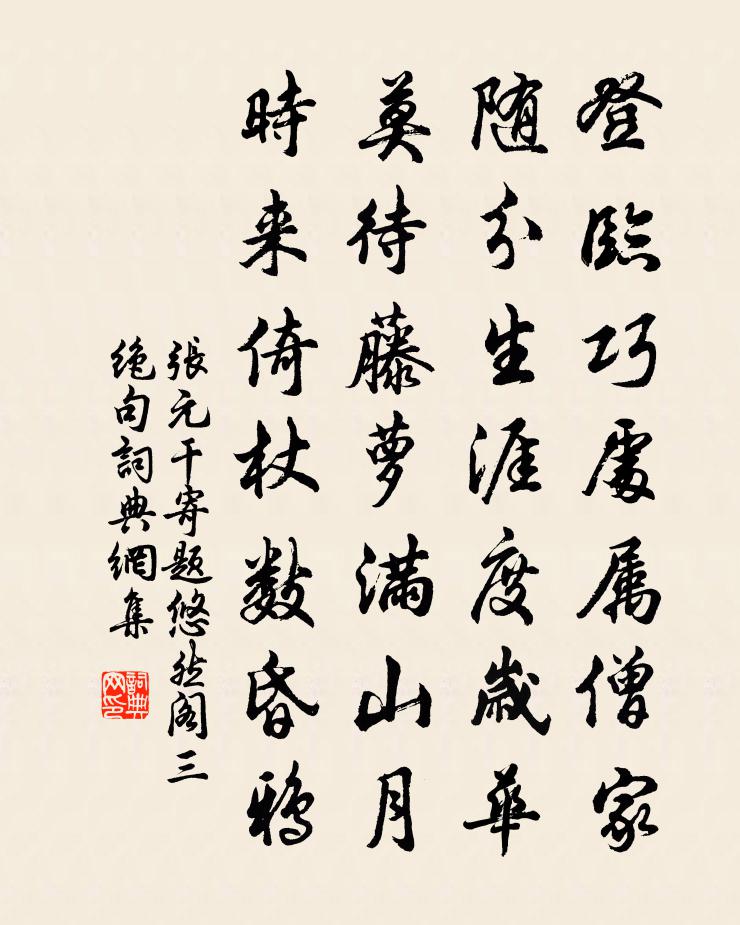 登臨巧處属僧家
随分生涯度歳華
莫待藤萝满山月
時来倚杖数昏鴉
張元干寄題悠然阁三
绝句詞典網集
詞典网印